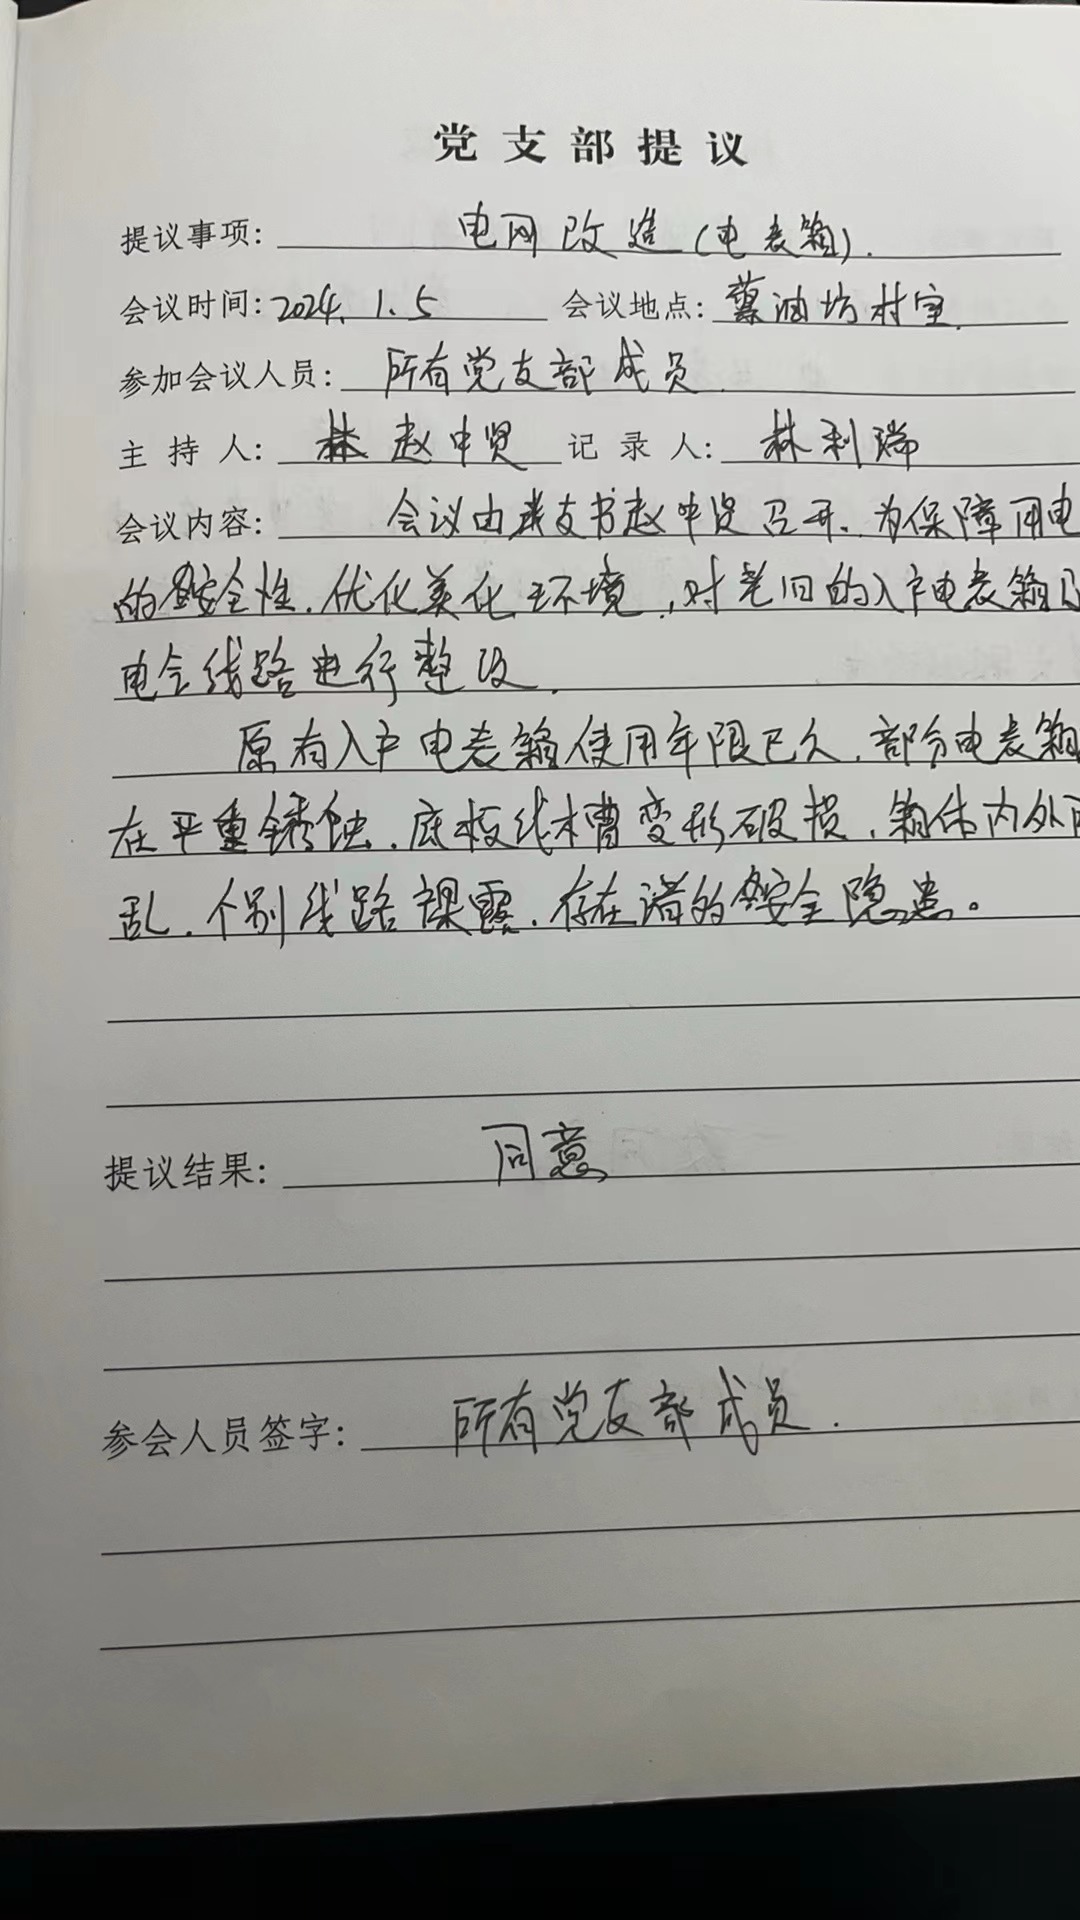 党支部提议
提议事项: 电网改造(电表箱).
会议时间: 2024.1.5 会议地点: 油坊村室.
参加会议人员: 所有党支部成员.
主持人: 赵中贤 记录人: 林利瑞
会议内容: 会议由支书赵中贤召开、为保障用电
的安全性.优化美化环境,对老旧的入户电表箱及
电线路进行整改.
原有入户电表箱使用年限已久.部分电表箱
在严重锈蚀.底板线槽变形破损.箱体内外
乱.个别线路裸露.存在诸的安全隐患。
提议结果: 同意
参会人员签字: 所有党支部成员.